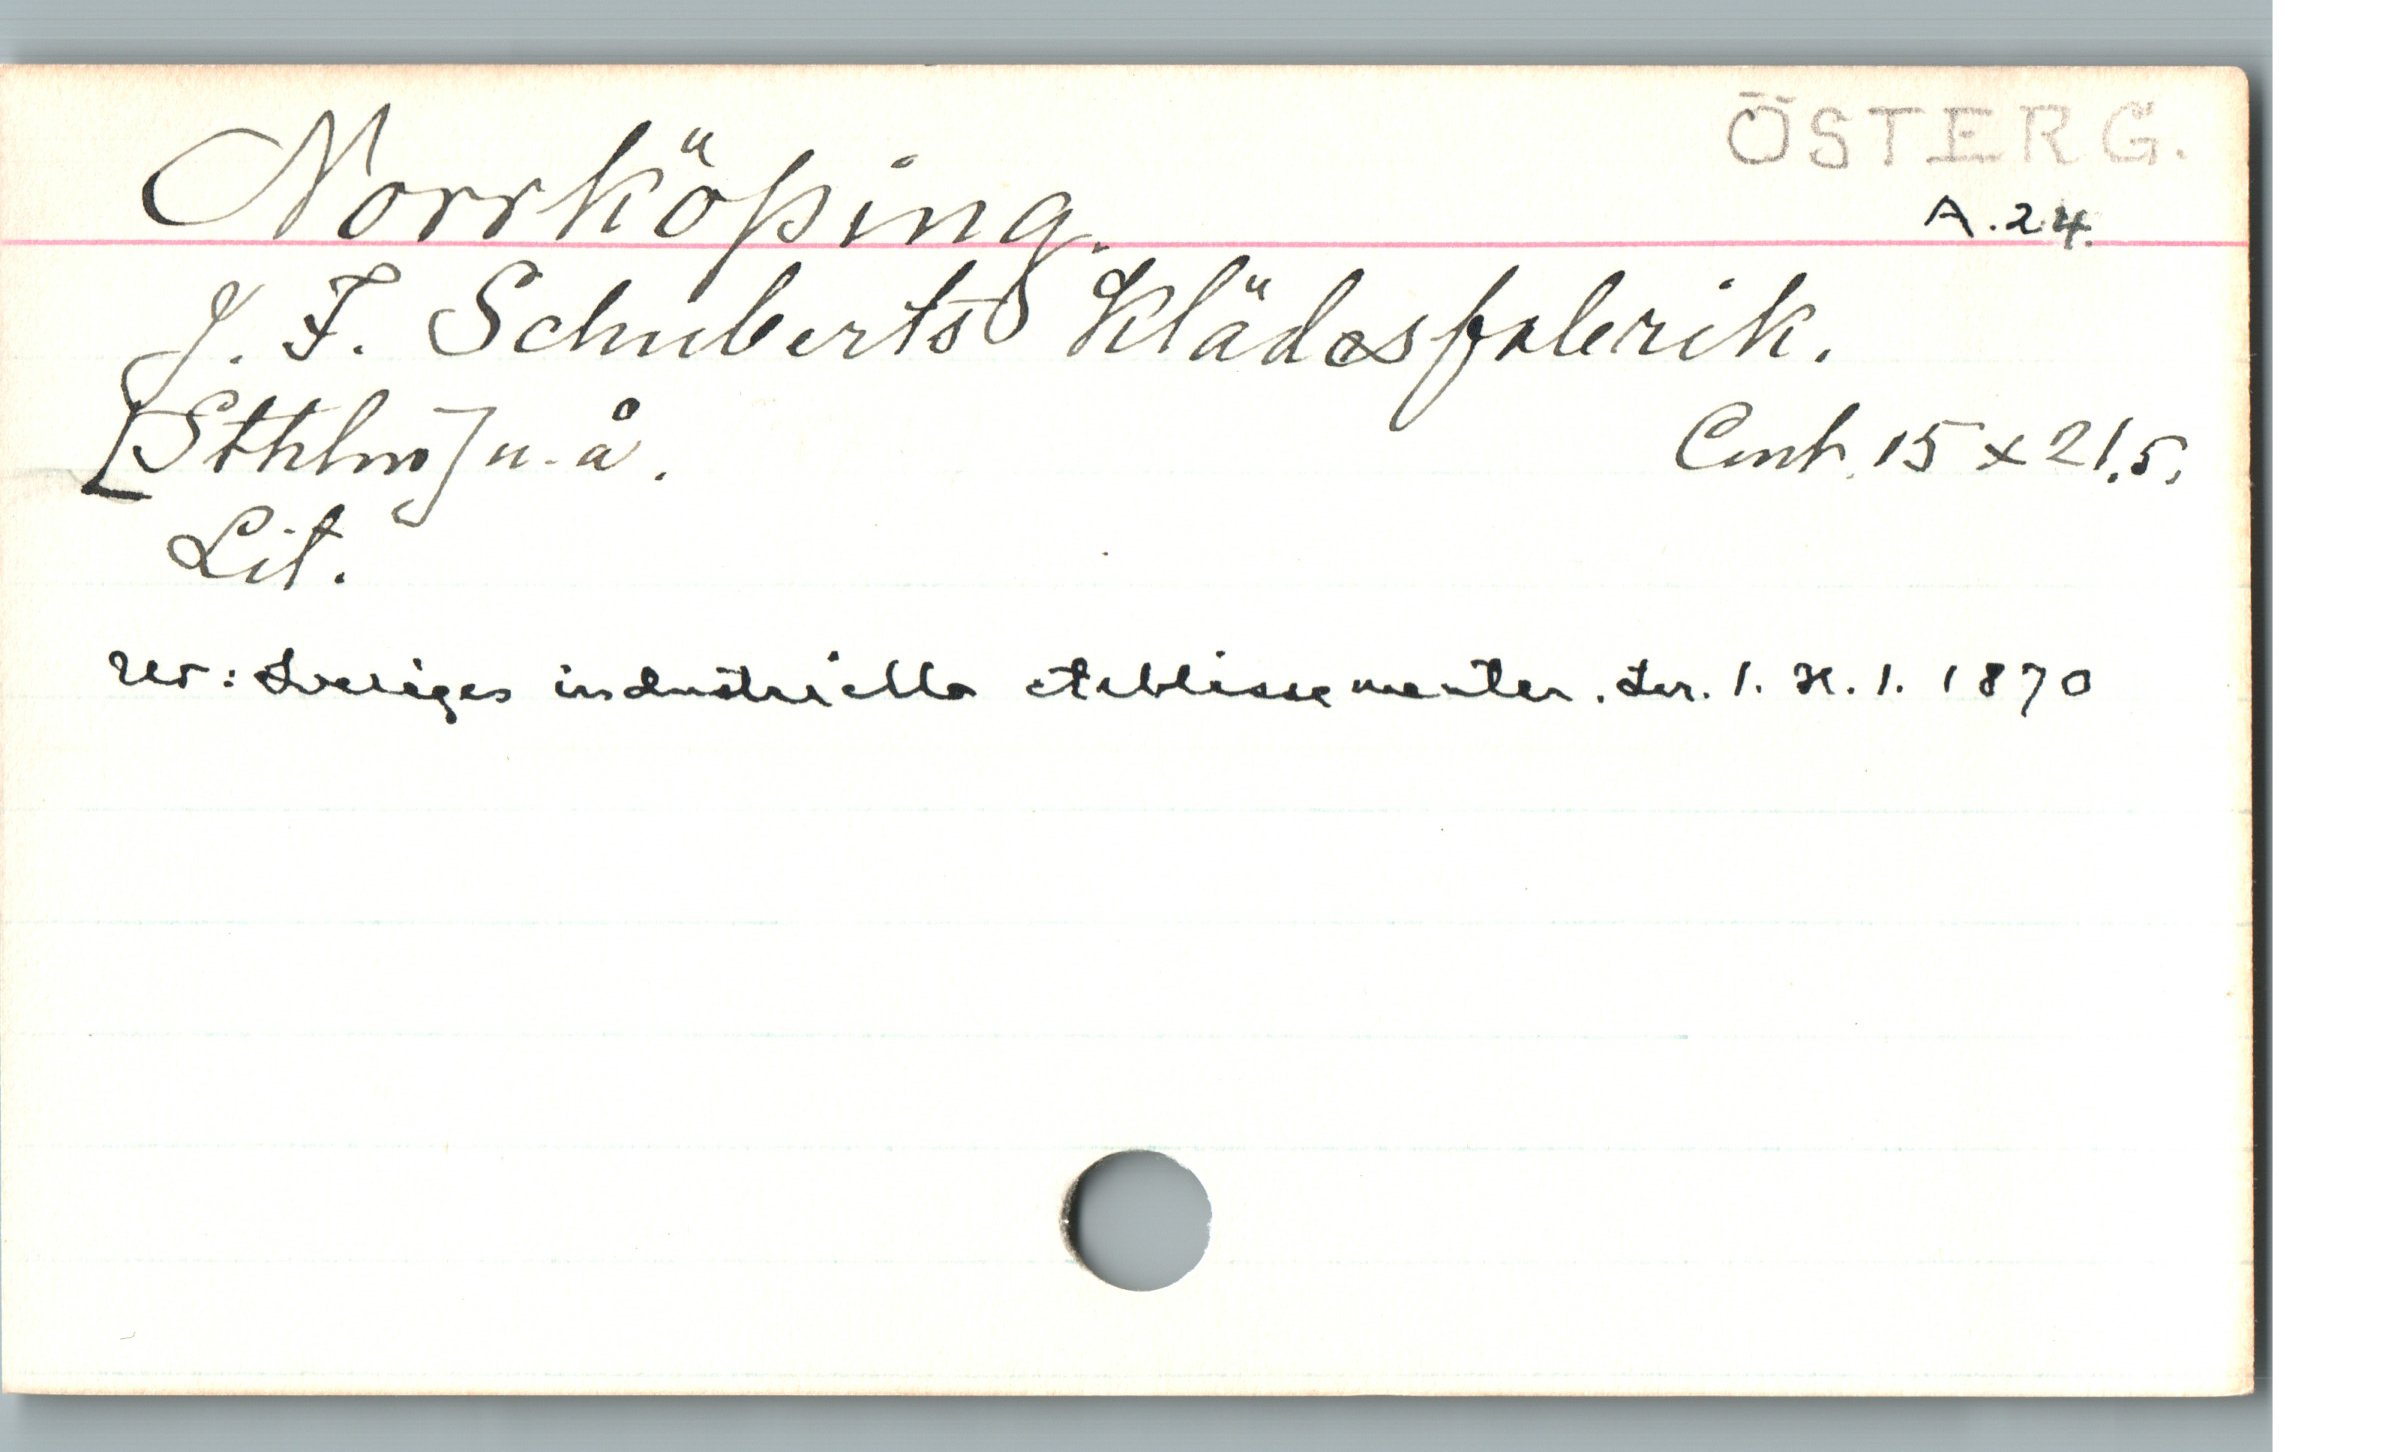 ÖSTERG.
Norrköping.
A.24.
J. F. Schuberts Klädesfabrik.
[Sthlm] u. å.
Cent. 15 x 21,5.
Lit.
Ur: Sveriges industriella etablissementer. Ser. 1. H. 1. 1870